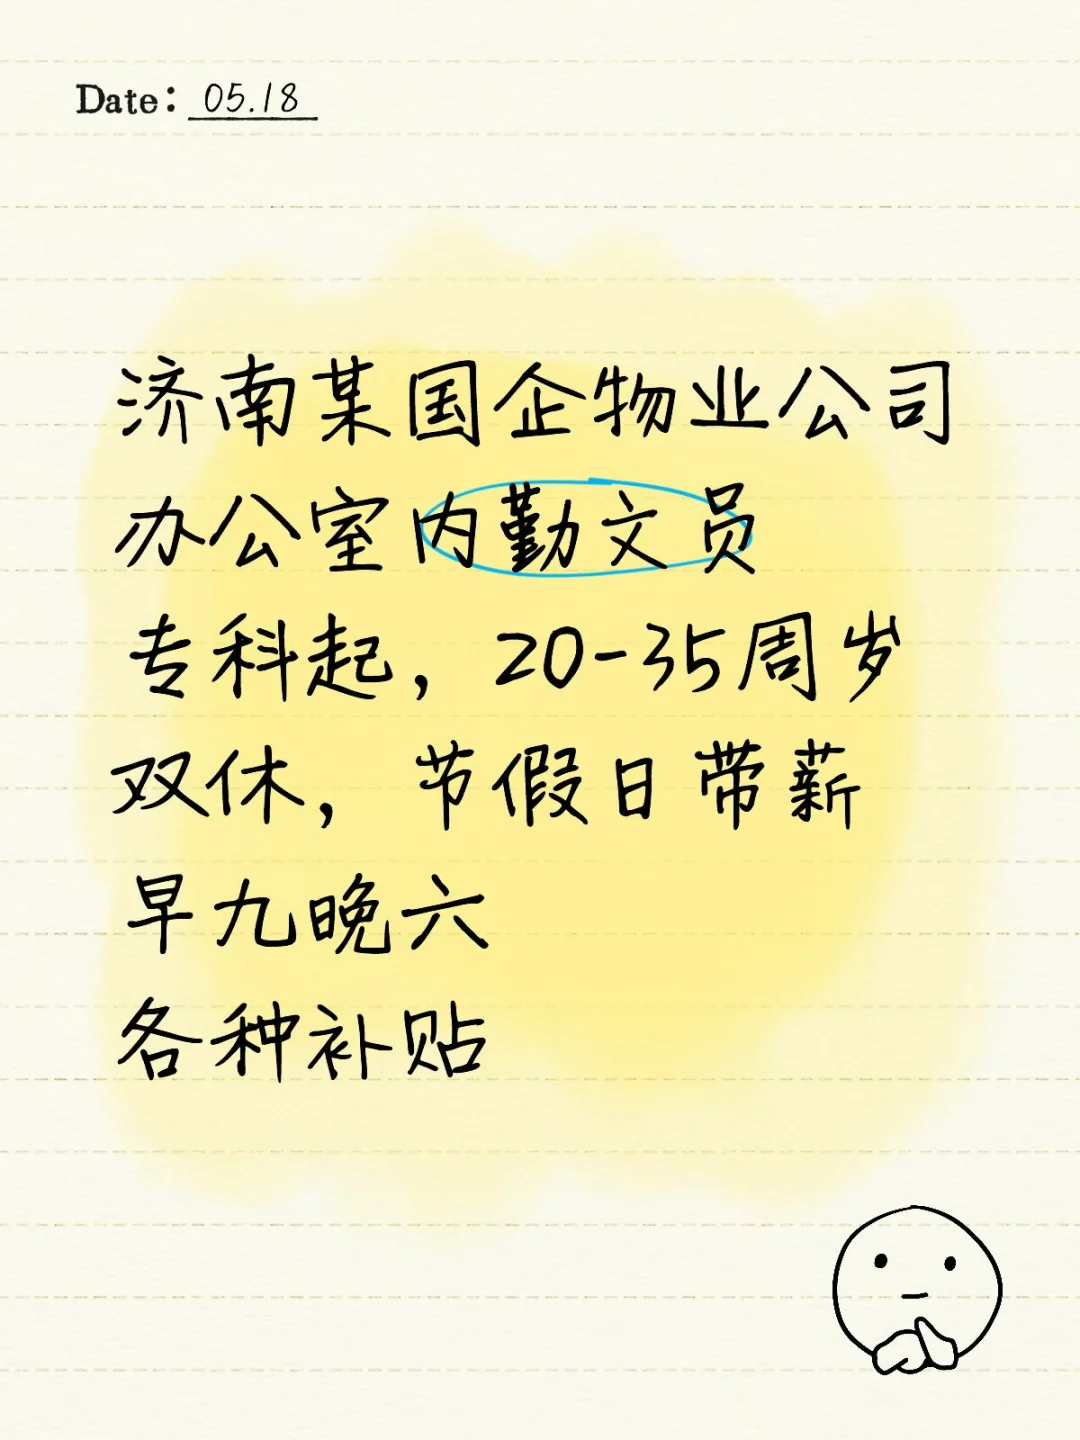 Date: 05.18
济南某国企物业公司
办公室内勤文员
专科起，20-35周岁
双休，节假日带薪
早九晚六
各种补贴